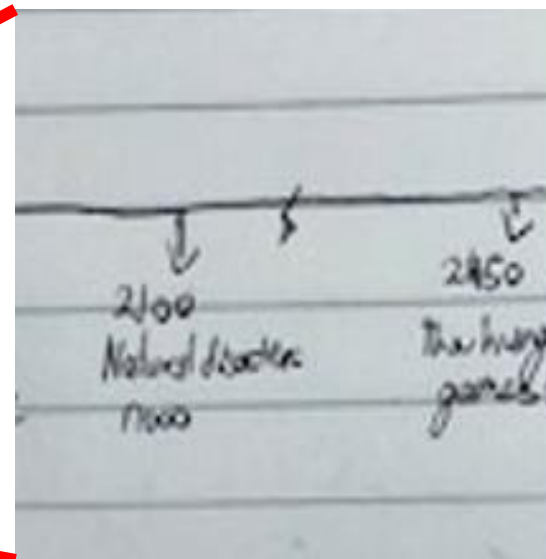 2100
Natural disaster
nooo
2450
The hung
games